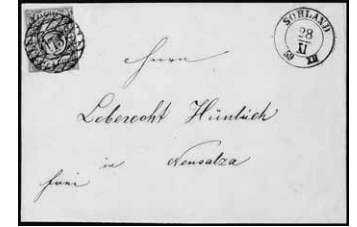 SOHLAND
28
XI
59 XII
Herrn
Leberecht Hünlich
in Neusalza
frei